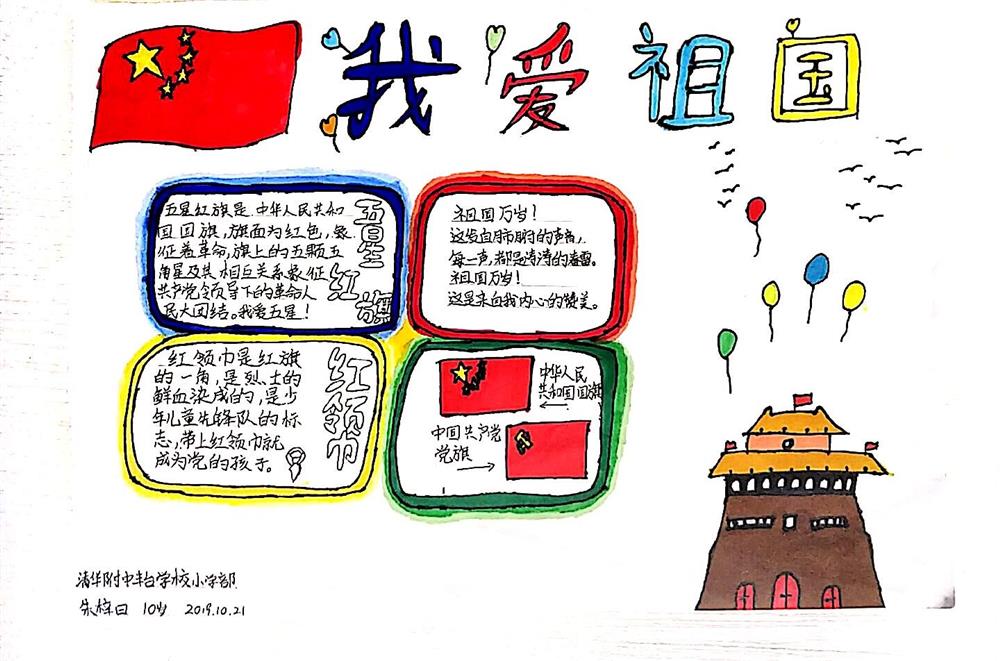 我爱祖国
五星红旗
五星红旗是中华人民共和
国国旗,旗面为红色,象
征着革命,旗上的五颗五
角星及其相互关系象征
共产党领导下的革命人
民大团结。我爱五星!
祖国万岁!
这发自肺腑的声音,
每一声,都是涛涛的春雷。
祖国万岁!
这是来自我内心的赞美。
红领巾
红领巾是红旗
的一角,是烈士的
鲜血染成的,是少
年儿童先锋队的标
志,带上红领巾就
成为党的孩子。
中华人民
共和国国旗
中国共产党
党旗
清华附中丰台学校小学部
朱梓曰 10岁 2019.10.21